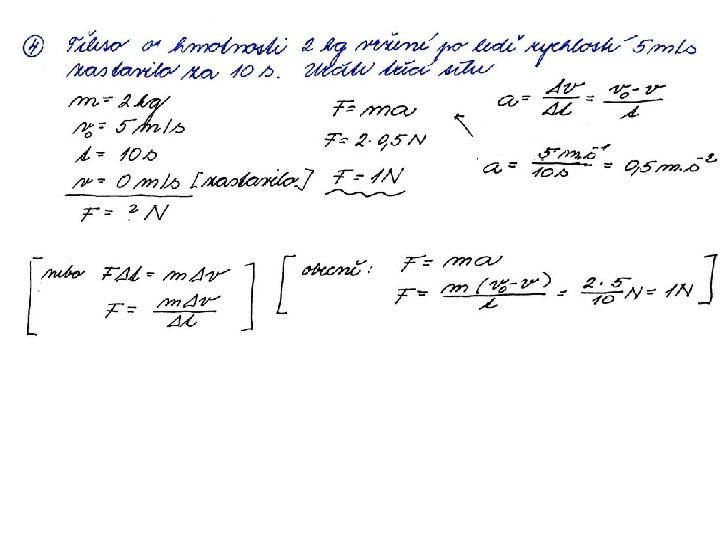 ④ Těleso o hmotnosti 2 kg vržené po ledě rychlostí 5 m/s
zastavilo za 10 s. Určete třecí sílu
m = 2 kg
v₀ = 5 m/s
t = 10 s
v = 0 m/s [zastavilo]
F = ? N
F = ma
F = 2·0,5 N
F = 1 N
a = Δv/Δt = (v₀-v)/t
a = 5 m.s⁻¹/10 s = 0,5 m.s⁻²
[nebo FΔt = mΔv
F = mΔv/Δt]
[obecně: F = ma
F = m(v₀-v)/t = 2·5/10 N = 1N]